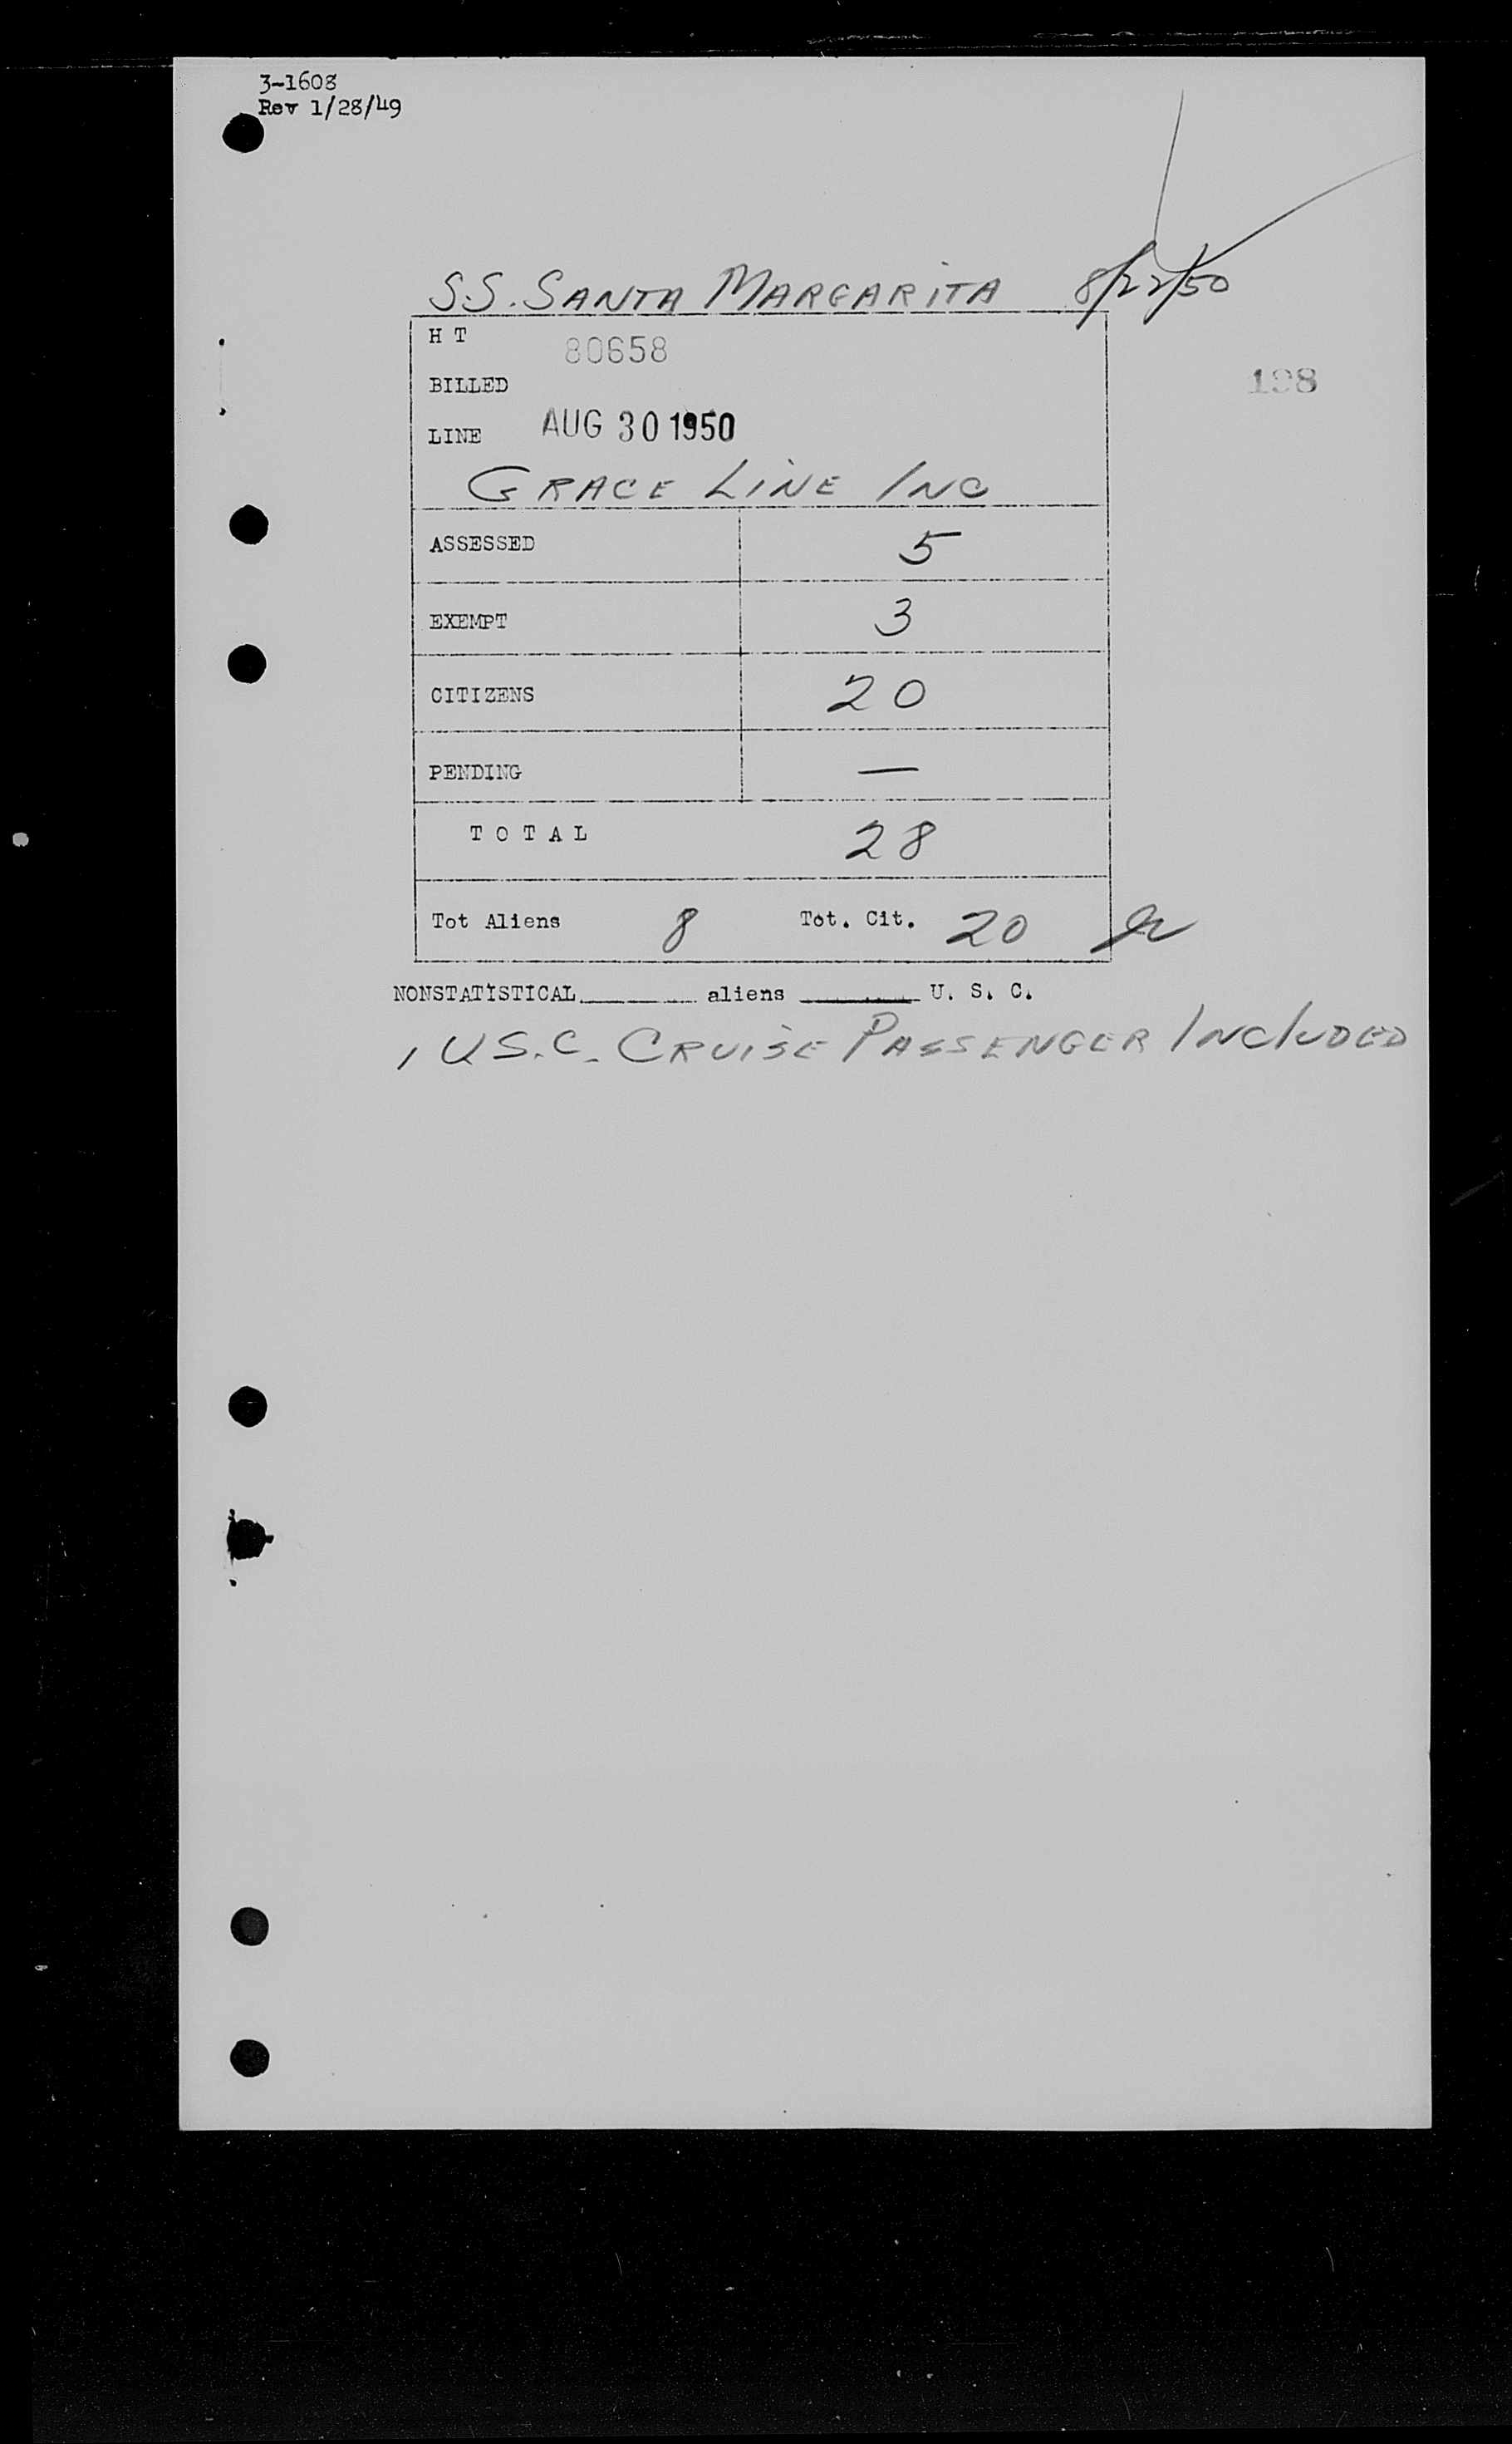 3-1608
Rev 1/28/49
S.S. SANTA MARGARITA 8/22/50
H T 80658
BILLED
198
LINE AUG 30 1950
GRACE LINE INC
ASSESSED 5
EXEMPT 3
CITIZENS 20
PENDING —
T O T A L 28
Tot Aliens 8 Tot. Cit. 20
NONSTATISTICAL________ aliens ________ U. S. C.
1 U.S.C. CRUISE PASSENGER INCLUDED